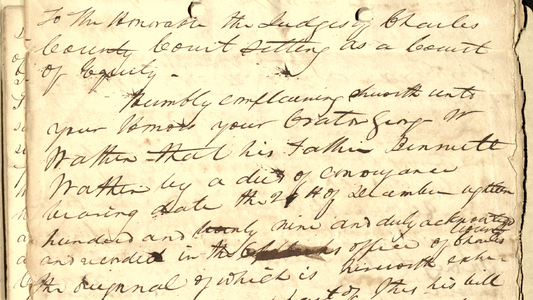 To The Honorable the Judges of Charles
County Court setting as a Court
of Equity.
Humbly complaining sheweth unto
your Honors your Orator George W
Wathen that his Father Bennett
Wathen by a deed of conveyance
bearing date the 24th of December eighteen
hundred and twenty nine and duly acknowledged
and recorded in the office of Charles
County
the original of which is herewith exhi
of this his bill